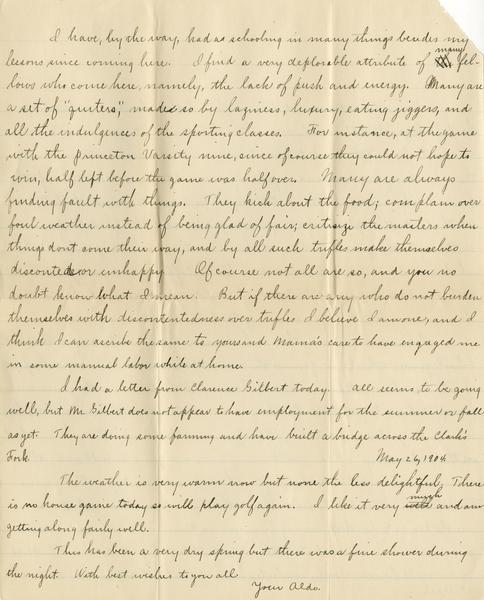 I have, by the way, had a schooling in many things besides my
lessons since coming here. I find a very deplorable attribute of many fel-
lows who come here, namely, the lack of push and energy. Many are
a set of "quiters," made so by laziness, luxury, eating jiggers, and
all the indulgences of the sporting classes. For instance, at the game
with the Princeton Varsity nine, since of course they could not hope to
win, half left before the game was half over. Many are always
finding fault with things. They kick about the food; complain over
foul weather instead of being glad of fair; critisize the masters when
things dont come their way, and by all such trifles make themselves
disconted or unhappy Of course not all are so, and you no
doubt know what I mean. But if there are any who do not burden
themselves with discontentedness over trifles I believe I am one, and I
think I can ascribe the same to yours and Mama's care to have engaged me
in some manual labor while at home.
I had a letter from Clarence Gilbert today. All seems to be going
well, but Mr. Gilbert does not appear to have employment for the summer or fall
as yet. They are doing some farming and have built a bridge across the Clark's
Fork. May 26, 1904.
The weather is very warm now but none the less delightful. There
is no house game today so will play golf again. I like it very well much and am
getting along fairly well.
This has been a very dry spring but there was a fine shower during
the night. With best wishes to you all
Your Aldo.